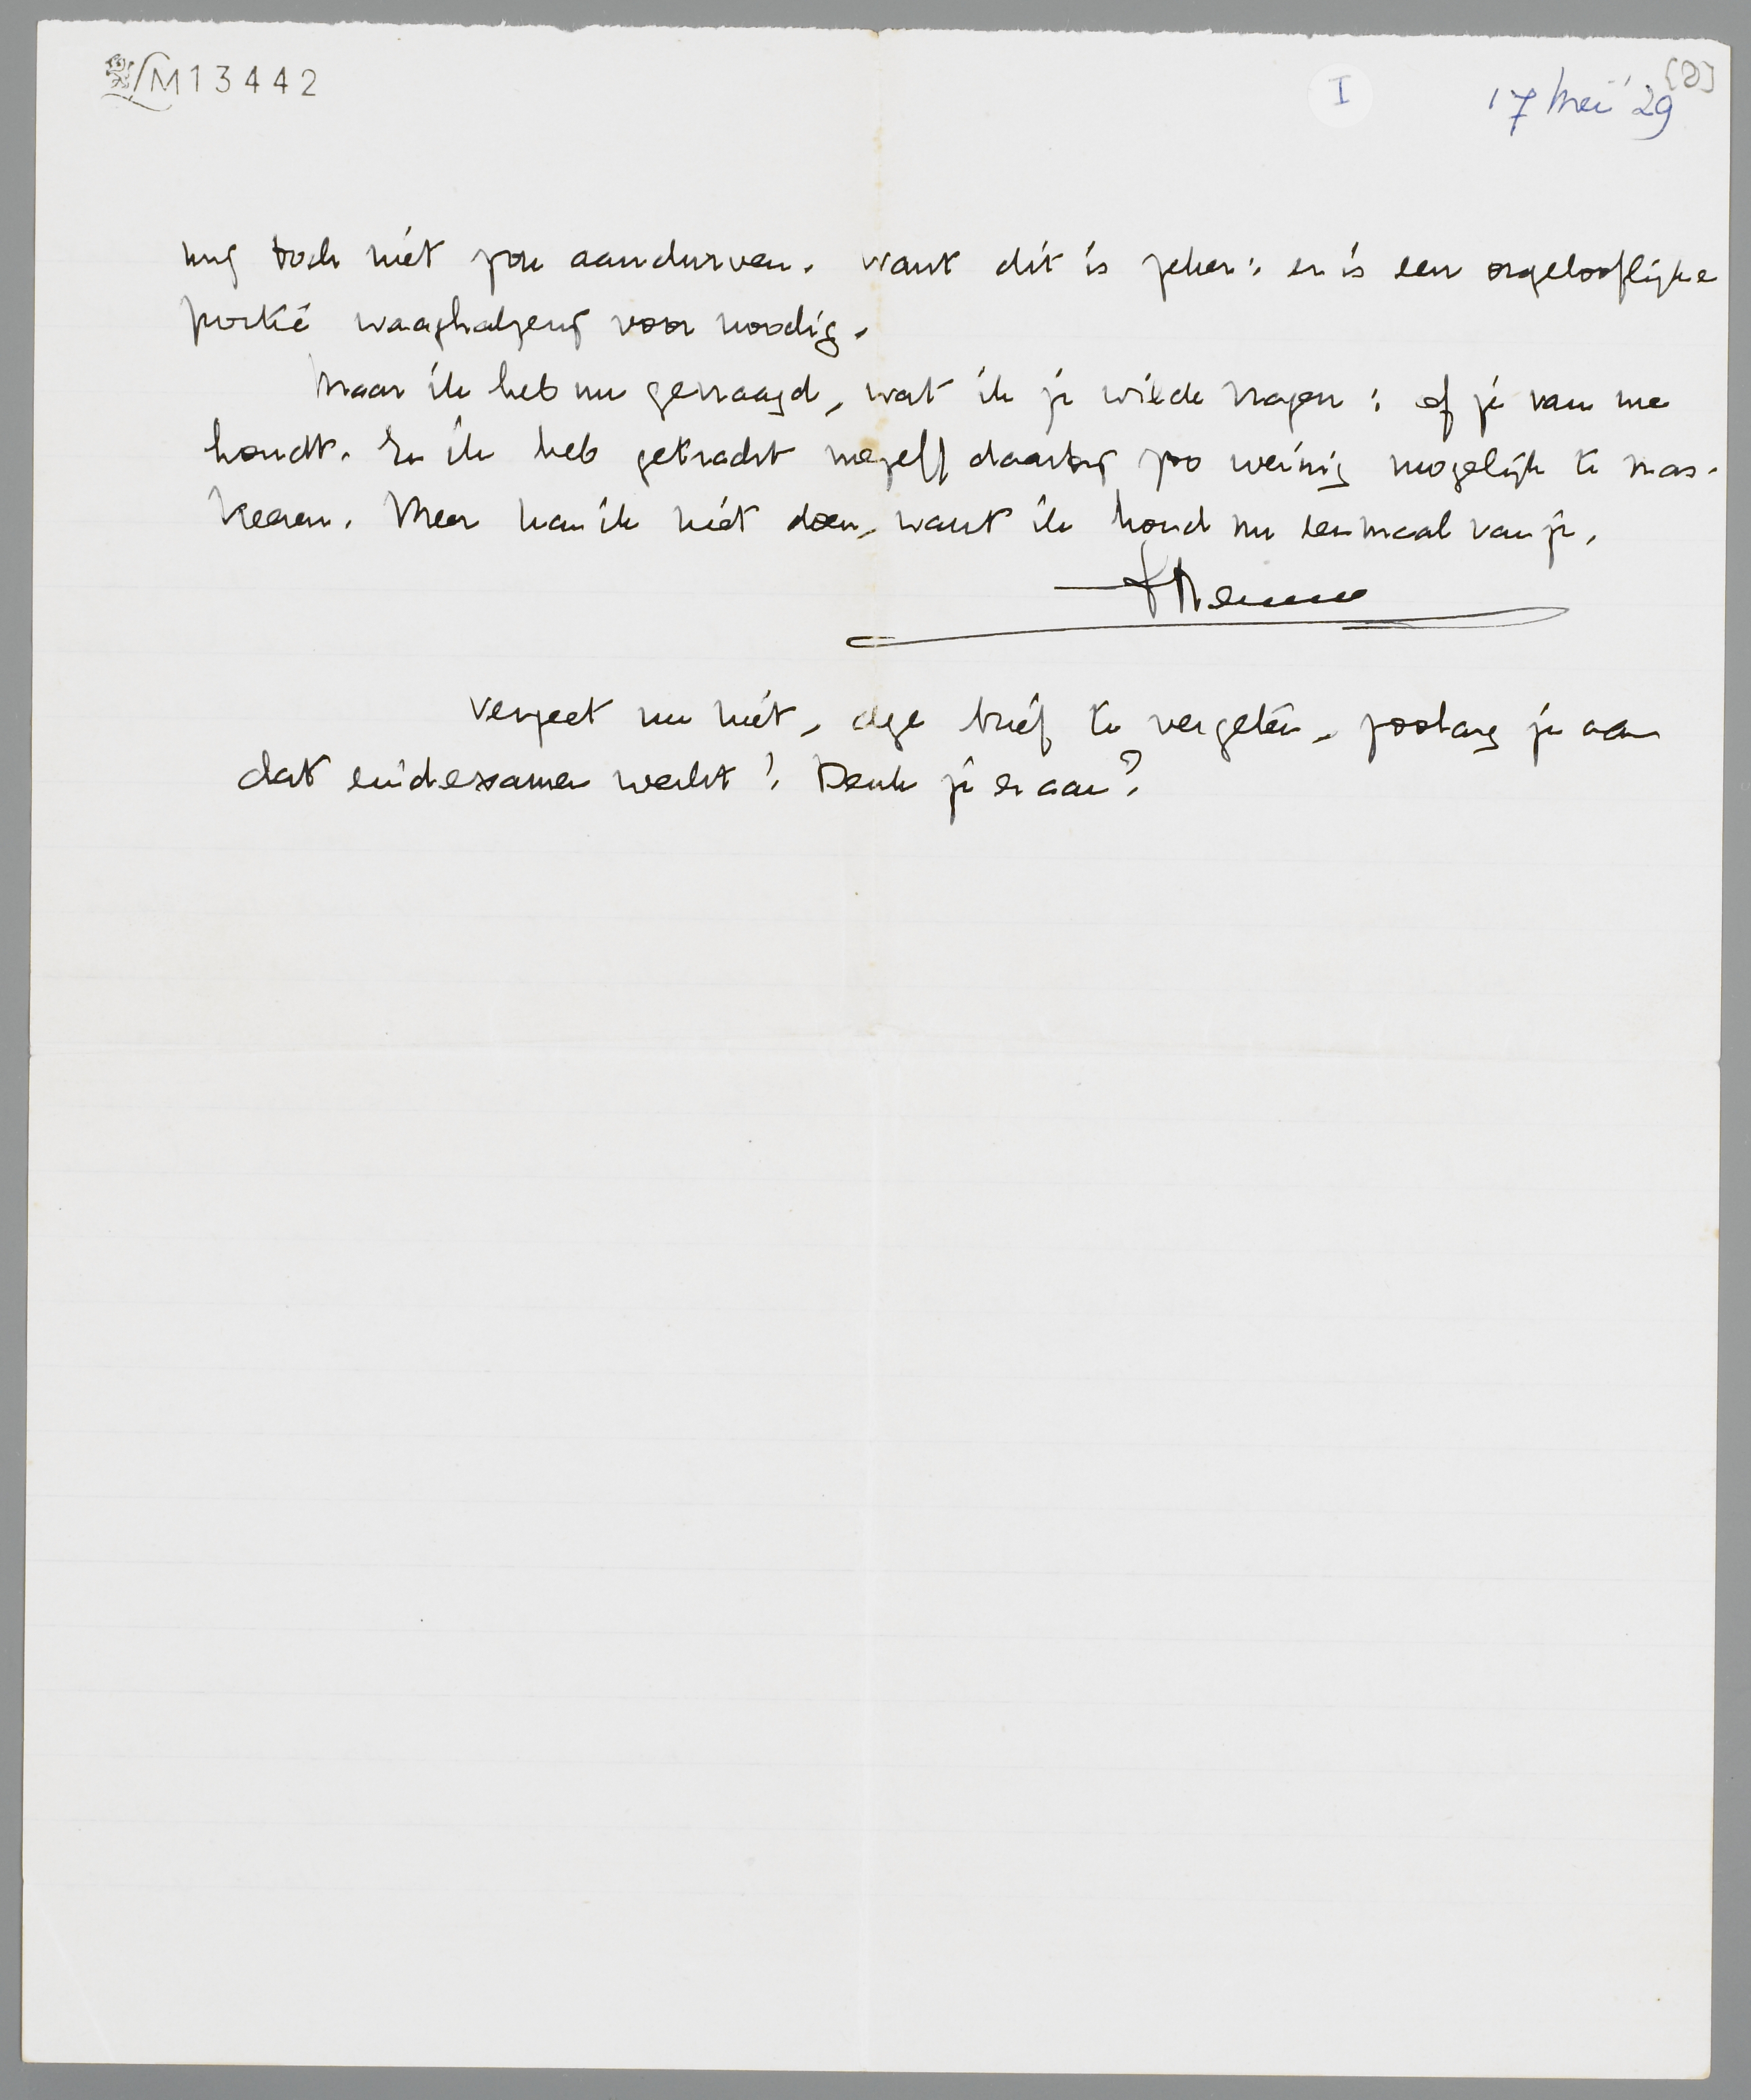 M13442
I
17 Mei '29
[2]
mij toch niet zou aandurven. Want dit is zeker: er is een ongelooflijke
portie waaghalzerij voor noodig.
Maar ik heb nu gevraagd, wat ik je wilde vragen: of je van me
houdt. En ik heb getracht mezelf daarbij zoo weinig mogelijk te mas-
keeren. Meer kan ik niet doen, want ik houd nu eenmaal van je.
Menno
Vergeet nu niet, deze brief te vergeten, zoolang je aan
dat eindexamen werkt! Denk je eraan?